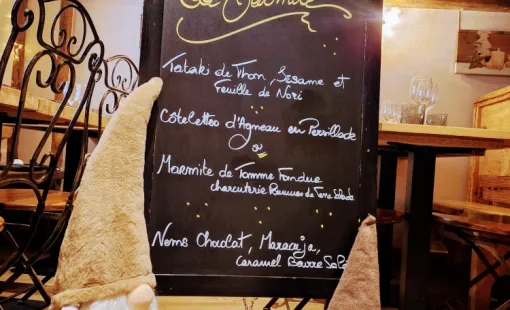 Tataki de Thon, Sesame et
Feuille de Nori
Côtelettes d'Agneau en Persillade
ou
Marmite de Tomme Fondue
charcuterie Pommes de Terre Salade
Nems Chocolat, Maracuja,
Caramel Beurre Salé